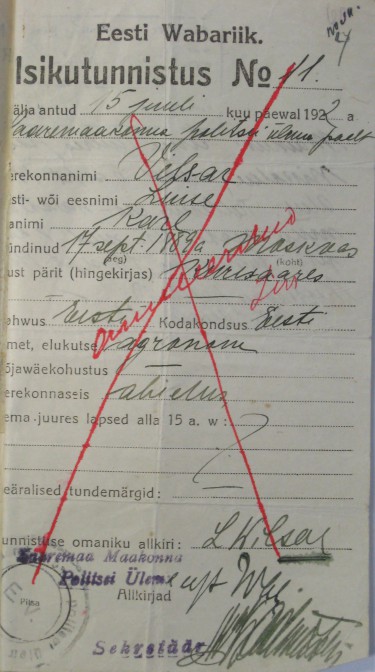 Mur.
4
Eesti Wabariik.
Isikutunnistus № 11.
älja antud 15 juuli kuu päewal 192 a
aaremaakonna politsei ülema poolt
erekonnanimi Vilsar
esti- wõi eesnimi Luise
animi Karl
ündinud 17 sept. 1889a Moskvas
(aeg) (koht)
ust pärit (hingekirjas) Kuresaares
ahwus Eesti Kodakondsus Eesti
met, elukutse agronom
õjawäekohustus —
erekonnaseis abielus
ema juures lapsed alla 15 a. w:
eäralised tundemärgid: —
unnistuse omaniku allkiri: L Vilsar
Saaremaa Maakonna
Politsei Ülem
Allkirjad
Sekretäär